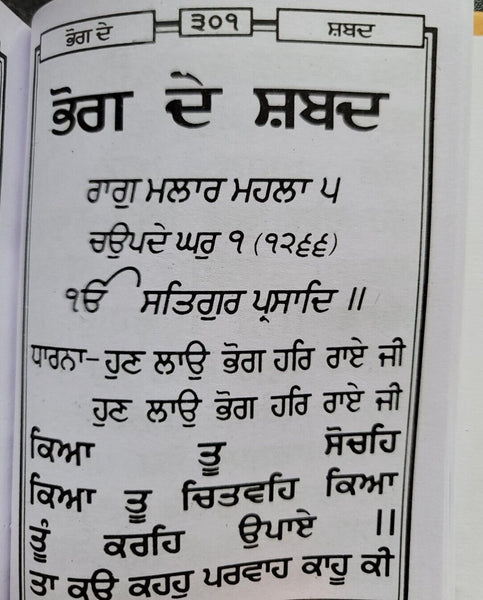 ਭੋਗ ਦੇ ੩੦੧ ਸ਼ਬਦ
ਭੋਗ ਦੇ ਸ਼ਬਦ
ਰਾਗੁ ਮਲਾਰ ਮਹਲਾ ੫
ਚਉਪਦੇ ਘਰੁ ੧ (੧੨੬੬)
ੴ ਸਤਿਗੁਰ ਪ੍ਰਸਾਦਿ ॥
ਧਾਰਨਾ-ਹੁਣ ਲਾਉ ਭੋਗ ਹਰਿ ਰਾਏ ਜੀ
ਹੁਣ ਲਾਉ ਭੋਗ ਹਰਿ ਰਾਏ ਜੀ
ਕਿਆ ਤੂ ਸੋਚਹਿ
ਕਿਆ ਤੂ ਚਿਤਵਹਿ ਕਿਆ
ਤੂੰ ਕਰਹਿ ਉਪਾਏ ॥
ਤਾ ਕਉ ਕਹਹੁ ਪਰਵਾਹ ਕਾਹੂ ਕੀ